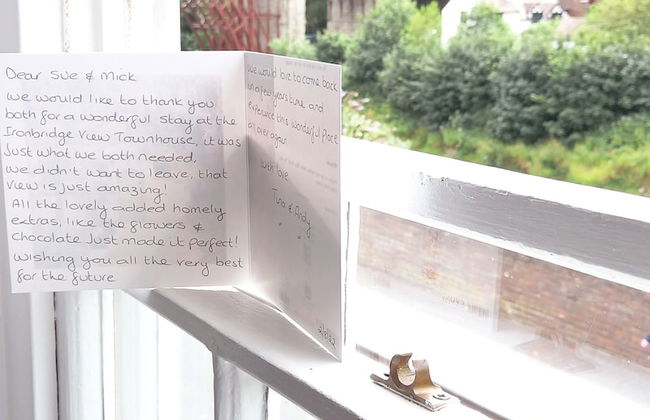 Dear Sue & Mick
We would like to thank you
both for a wonderful stay at the
Ironbridge View Townhouse, it was
Just what we both needed,
we didn't want to leave, that
view is just amazing!
All the lovely added homely
extras, like the flowers &
Chocolate Just made it perfect!
Wishing you all the very best
for the future
We would love to come back
in a few years time and
experience this wonderful place
all over again
With love
Tina & Andy